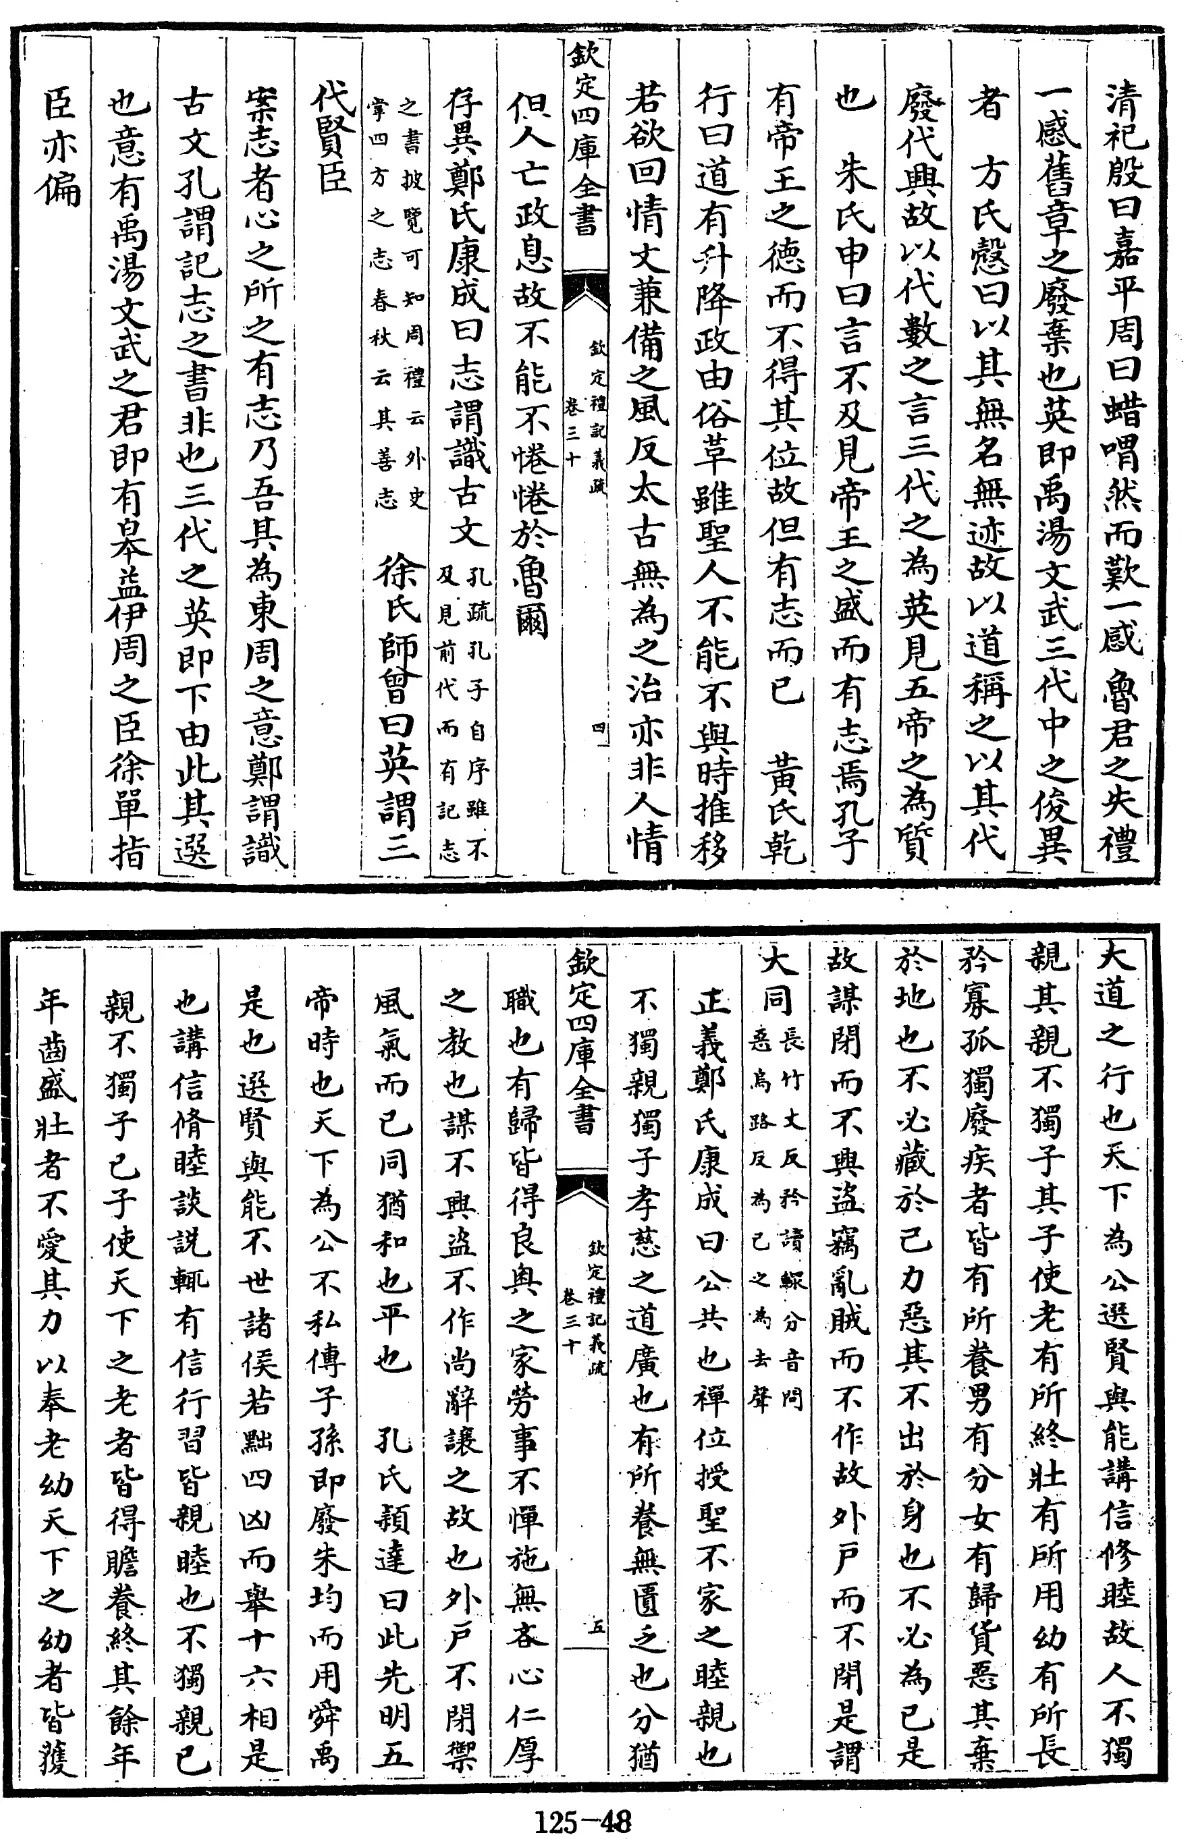 清祀殷曰嘉平周曰蜡喟然而歎一感魯君之失禮
一感舊章之廢棄也英即禹湯文武三代中之俊異
者　方氏慤曰以其無名無迹故以道稱之以其代
廢代興故以代數之言三代之為英見五帝之為質
也　朱氏申曰言不及見帝王之盛而有志焉孔子
有帝王之德而不得其位故但有志而已　黃氏乾
行曰道有升降政由俗革雖聖人不能不與時推移
若欲回情文兼備之風反太古無為之治亦非人情
欽定四庫全書
欽定禮記義疏
卷三十
四
但人亡政息故不能不惓惓於魯爾
存異鄭氏康成曰志謂識古文孔疏孔子自序雖不
及見前代而有記志
之書披覽可知周禮云外史
掌四方之志春秋云其善志　徐氏師曾曰英謂三
代賢臣
案志者心之所之有志乃吾其為東周之意鄭謂識
古文孔謂記志之書非也三代之英即下由此其選
也意有禹湯文武之君即有皋益伊周之臣徐單指
臣亦偏
大道之行也天下為公選賢與能講信修睦故人不獨
親其親不獨子其子使老有所終壯有所用幼有所長
矜寡孤獨廢疾者皆有所養男有分女有歸貨惡其棄
於地也不必藏於己力惡其不出於身也不必為己是
故謀閉而不興盜竊亂賊而不作故外戶而不閉是謂
大同長竹丈反矜讀鰥分音問
惡烏路反為己之為去聲
正義鄭氏康成曰公共也禪位授聖不家之睦親也
不獨親獨子孝慈之道廣也有所養無匱乏也分猶
欽定四庫全書
欽定禮記義疏
卷三十
五
職也有歸皆得良奧之家勞事不憚施無吝心仁厚
之教也謀不興盜不作尚辭讓之故也外戶不閉禦
風氣而已同猶和也平也　孔氏穎達曰此先明五
帝時也天下為公不私傳子孫即廢朱均而用舜禹
是也選賢與能不世諸侯若黜四凶而舉十六相是
也講信脩睦談說輒有信行習皆親睦也不獨親己
親不獨子己子使天下之老者皆得贍養終其餘年
年齒盛壯者不愛其力以奉老幼天下之幼者皆獲
125-48